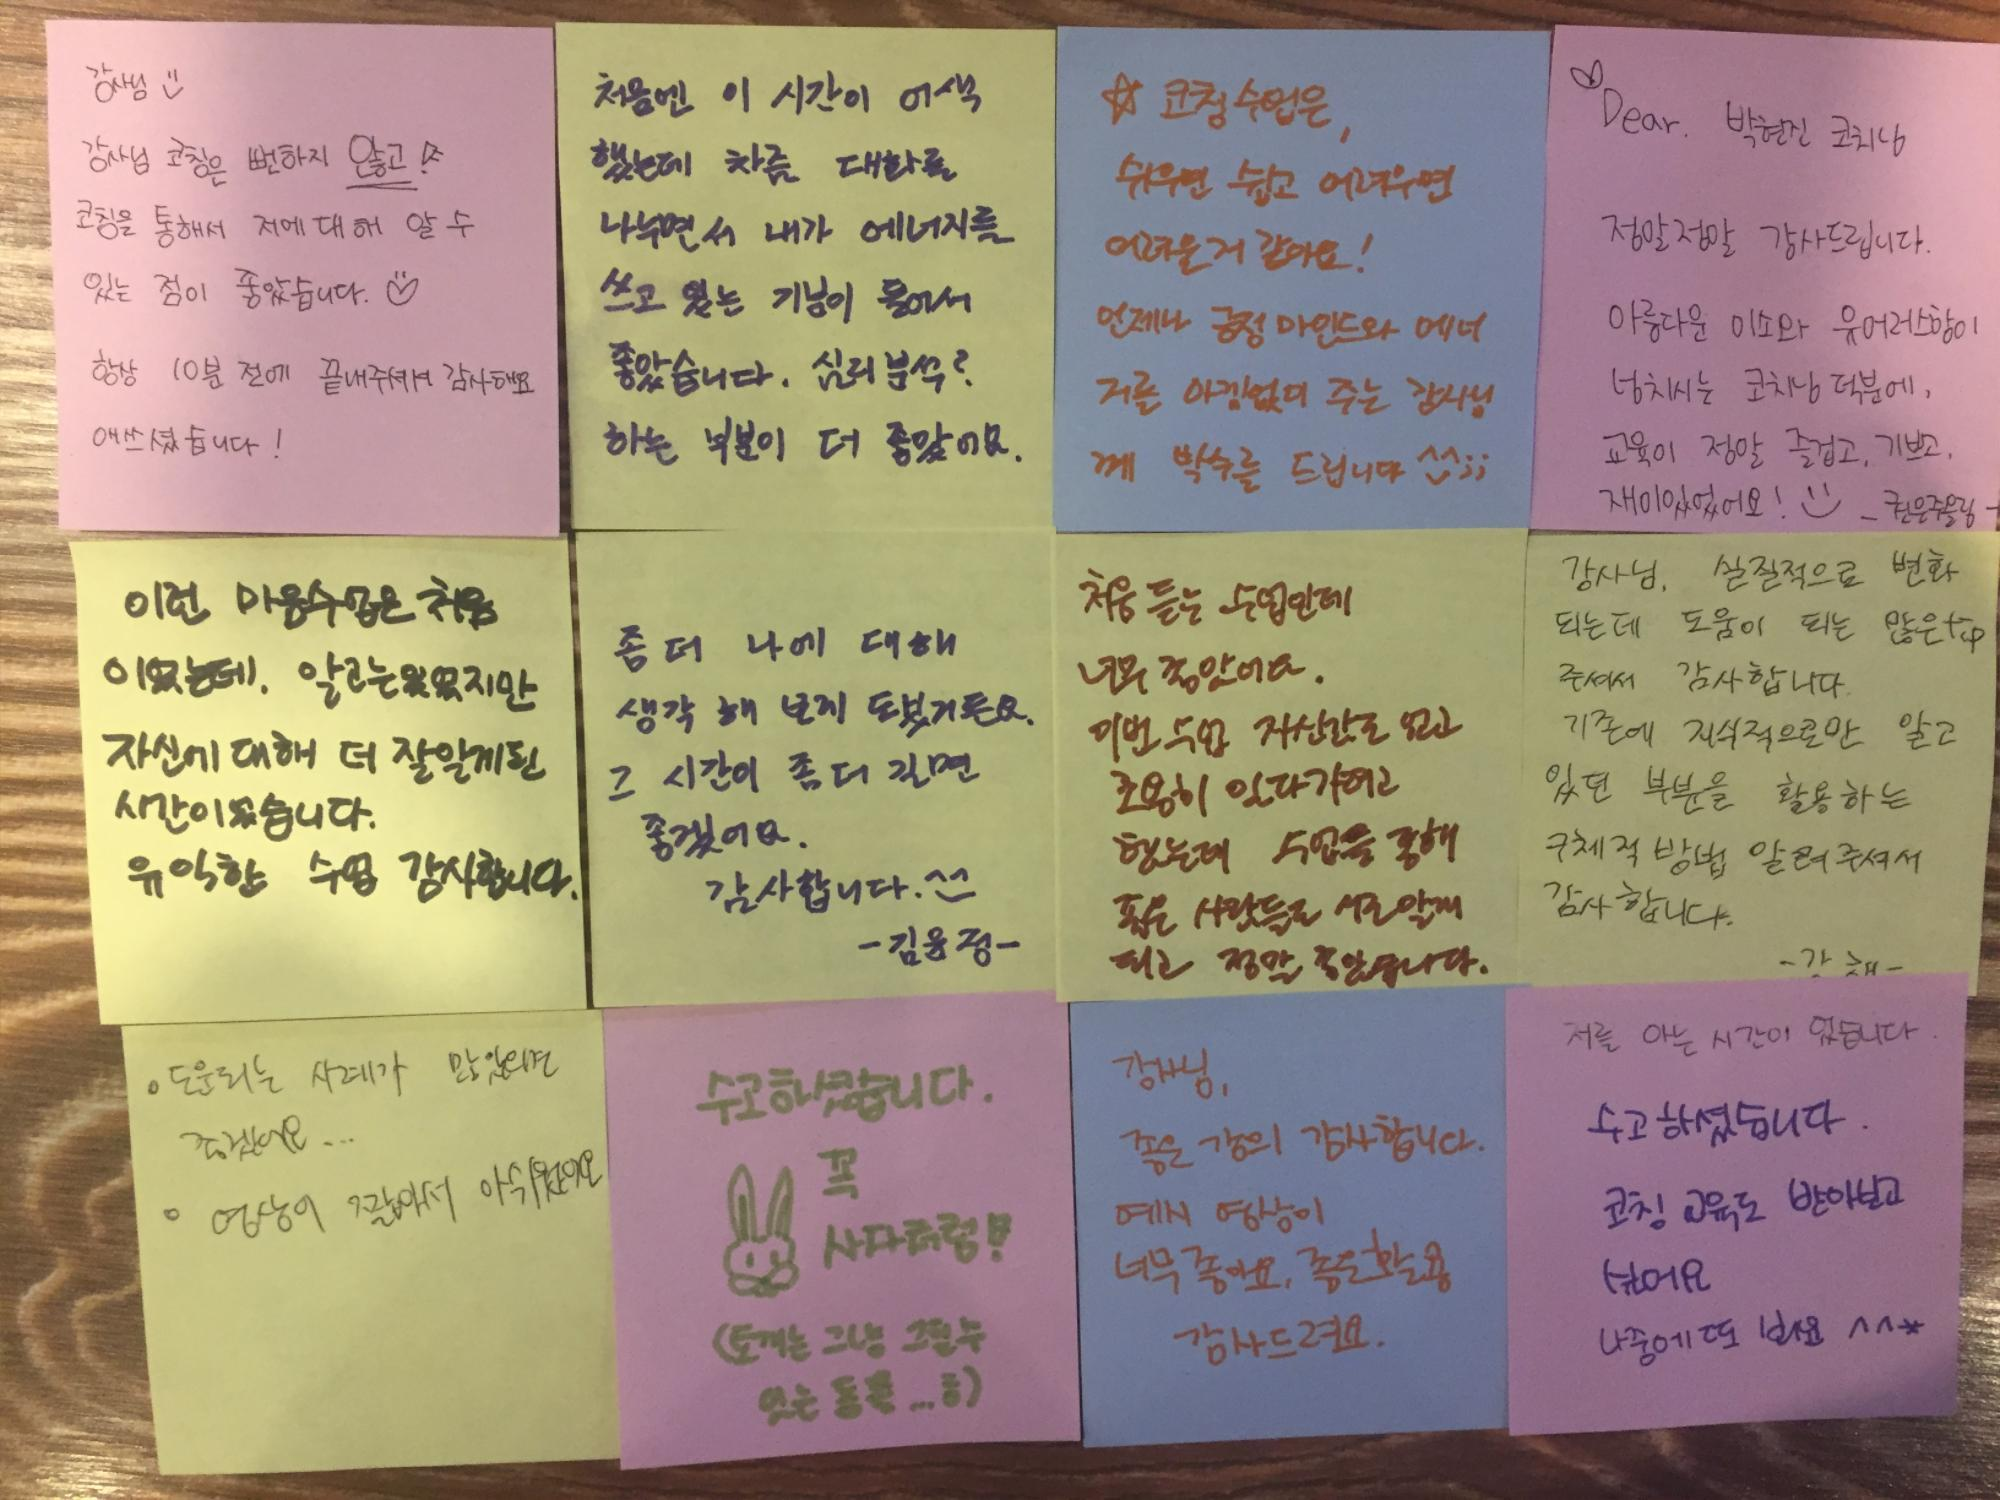 강사님
강사님 코칭은 뻔하지 않고!
코칭을 통해서 저에 대해 알 수
있는 점이 좋았습니다.
항상 10분 전에 끝내주셔서 감사해요
애쓰셨습니다!
처음엔 이 시간이 어색
했는데 차츰 대화를
나누면서 내가 에너지를
쓰고 있는 기분이 들어서
좋았습니다. 심리분석?
하는 부분이 더 좋았어요.
☆ 코칭수업은,
쉬우면 쉽고 어려우면
어려운거 같아요!
언제나 긍정 마인드와 에너
지를 아낌없이 주는 강사님
께 박수를 드립니다 ^^;;
Dear. 박현진 코치님
정말정말 감사드립니다.
아름다운 미소와 유머러스함이
넘치시는 코치님 덕분에,
교육이 정말 즐겁고, 기쁘고,
재미있었어요!
이런 마음수업은 처음
이었는데, 알고는있었지만
자신에 대해 더 잘알게된
시간이었습니다.
유익한 수업 감사합니다.
좀 더 나에 대해
생각 해 보게 되었거든요.
그 시간이 좀 더 길면
좋겠어요.
감사합니다.^^
-김윤정-
처음 듣는 수업인데
너무 좋았어요.
이번 수업 자신감도 없고
조용히 있다가려고
했는데 수업을 통해
좋은 사람들도 서로 알게
되고 정말 좋았습니다.
강사님, 실질적으로 변화
되는데 도움이 되는 많은 tip
주셔서 감사합니다.
기존에 지식적으로만 알고
있던 부분을 활용하는
구체적 방법 알려주셔서
감사합니다.
• 도움되는 사례가 많았으면
좋겠어요...
• 영상이 짧아서 아쉬웠어요
수고하셨습니다.
꼭
사다처럼!
(토끼는 그냥 그릴수
있는 동물...ㅎ)
강사님,
좋은 강의 감사합니다.
예시 영상이
너무좋아요, 좋은활용
감사드려요.
저를 아는 시간이 었습니다.
수고하셨습니다.
코칭 교육도 받아보고
싶어요
나중에 또 봐요 ^^*